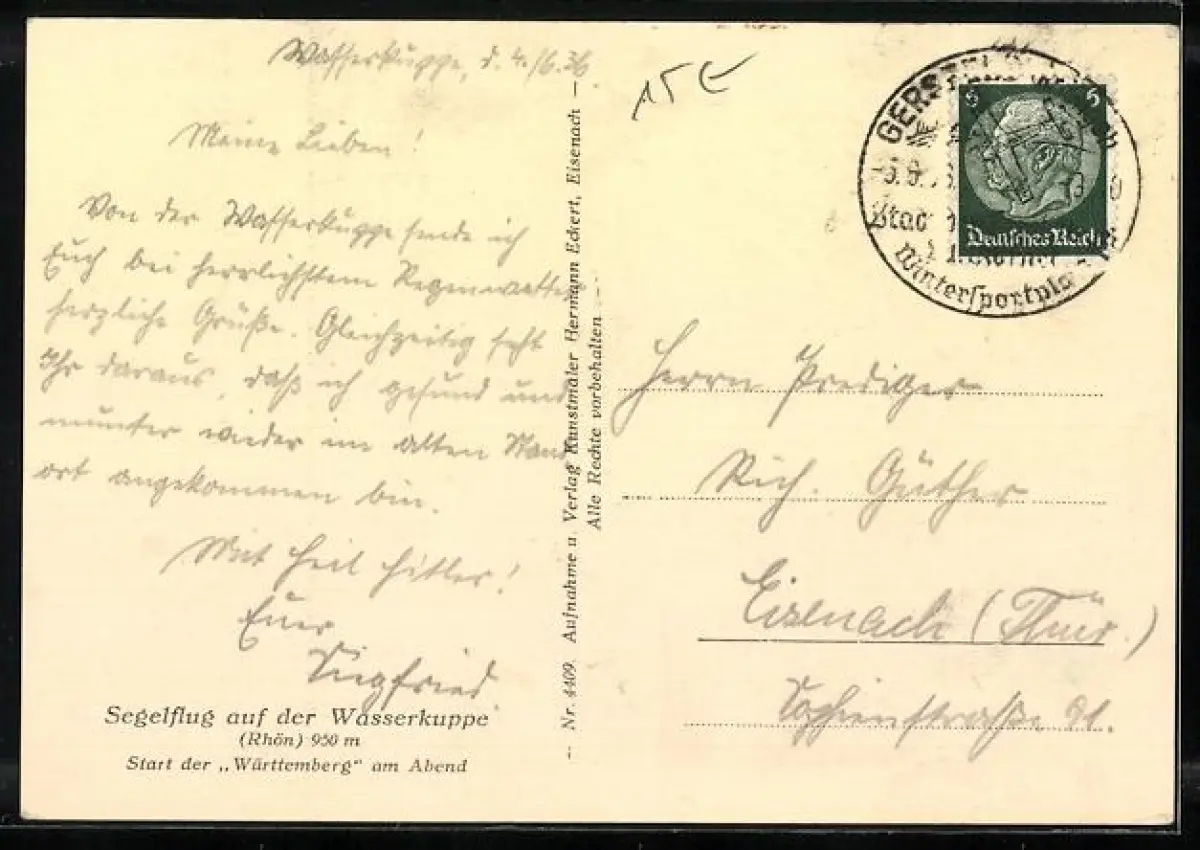 Wasserkuppe, d. 4./6.36.
Meine Lieben!
Von der Wasserkuppe sende ich
Euch bei herrlichstem Regenwetter
herzliche Grüße. Gleichzeitig seht
Ihr daraus, daß ich gesund und
munter wieder im alten Stand
ort angekommen bin.
Mit Heil Hitler!
Euer
Siegfried.
Segelflug auf der Wasserkuppe
(Rhön) 950 m
Start der „Württemberg“ am Abend
— Nr. 4409. Aufnahme u. Verlag Kunstmaler Hermann Eckert, Eisenach —
Alle Rechte vorbehalten
15 €
GERSFELD
Wintersportplatz
6 6
Deutsches Reich
Herrn Prediger
Rich. Güther
Eisenach (Thür.)
Sophienstraße 91.